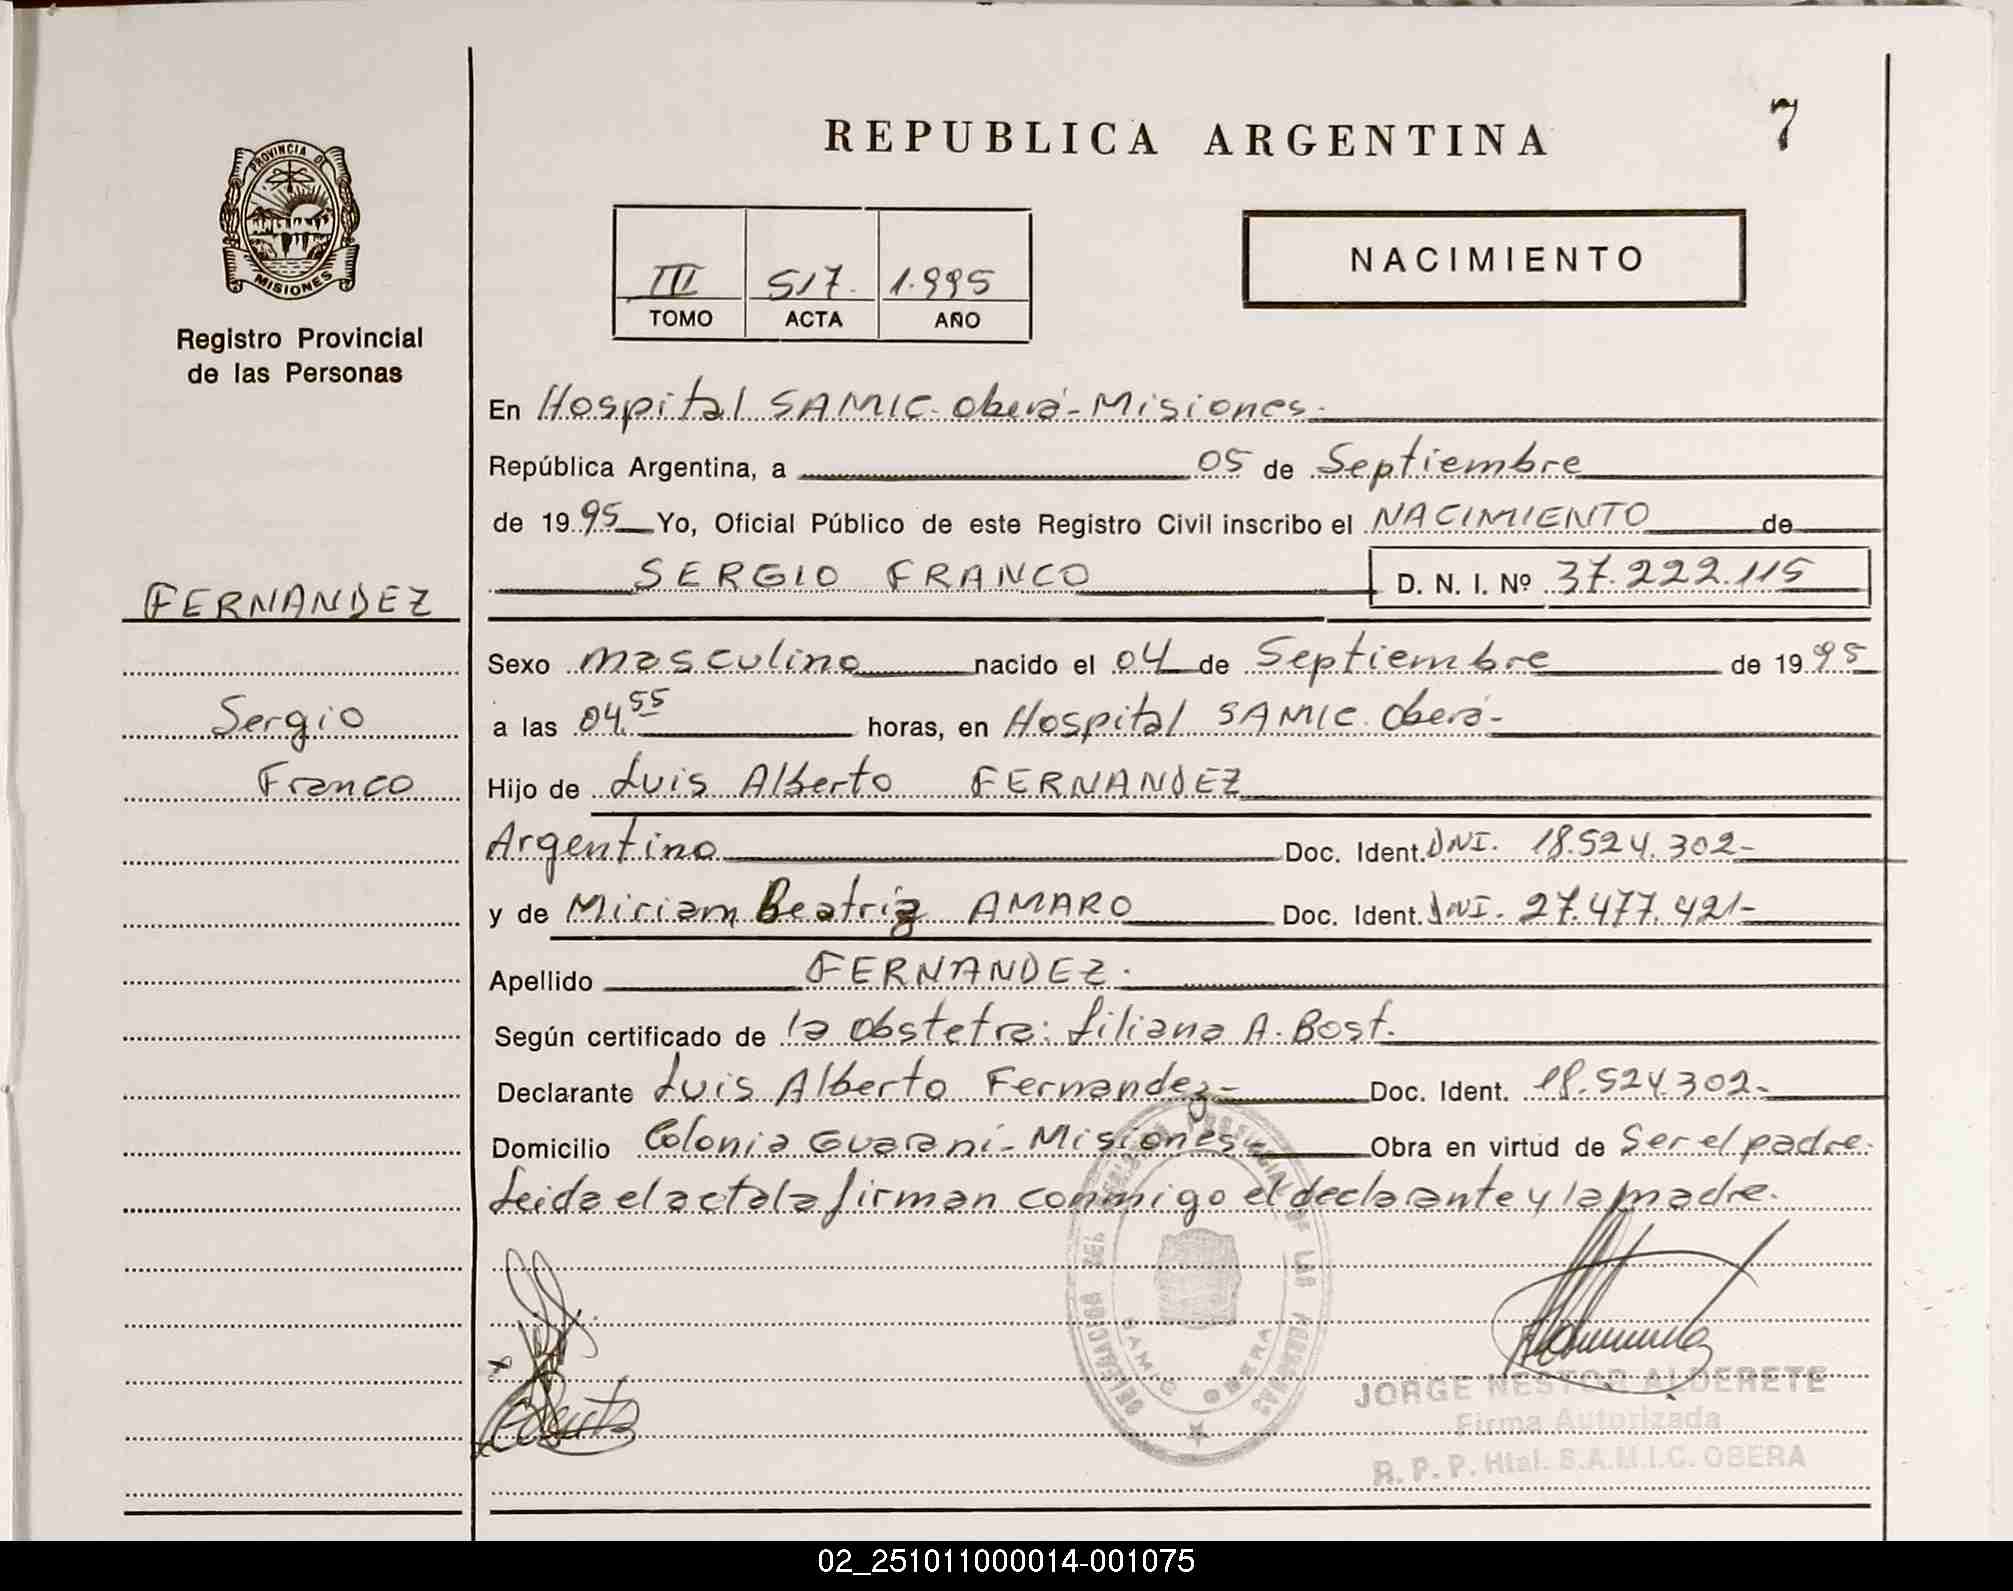 REPUBLICA ARGENTINA
7
PROVINCIA DE
MISIONES
Registro Provincial
de las Personas
III 517. 1.995
TOMO ACTA AÑO
NACIMIENTO
En Hospital SAMIC. Oberá-Misiones.
República Argentina, a 05 de Septiembre
de 1995 Yo, Oficial Público de este Registro Civil inscribo el NACIMIENTO de
SERGIO FRANCO D. N. I. Nº 37.222.115
FERNANDEZ
Sergio
Franco
Sexo masculino nacido el 04 de Septiembre de 1995
a las 04.55 horas, en Hospital SAMIC. Oberá-
Hijo de Luis Alberto FERNANDEZ
Argentino Doc. Ident. DNI. 18.524.302-
y de Miriam Beatriz AMARO Doc. Ident. DNI. 27.477.421-
Apellido FERNANDEZ.
Según certificado de la obstetra: Liliana A. Bost.
Declarante Luis Alberto Fernandez- Doc. Ident. 18.524.302-
Domicilio Colonia Guaraní- Misiones- Obra en virtud de Ser el padre.
Leida el acta la firman conmigo el declarante y la madre.
DELEGACION DEL REGISTRO PROVINCIAL DE LAS PERSONAS
SAMIC OBERA
JORGE NESTOR ALDERETE
Firma Autorizada
R. P. P. Htal. S.A.M.I.C. OBERA
02_251011000014-001075